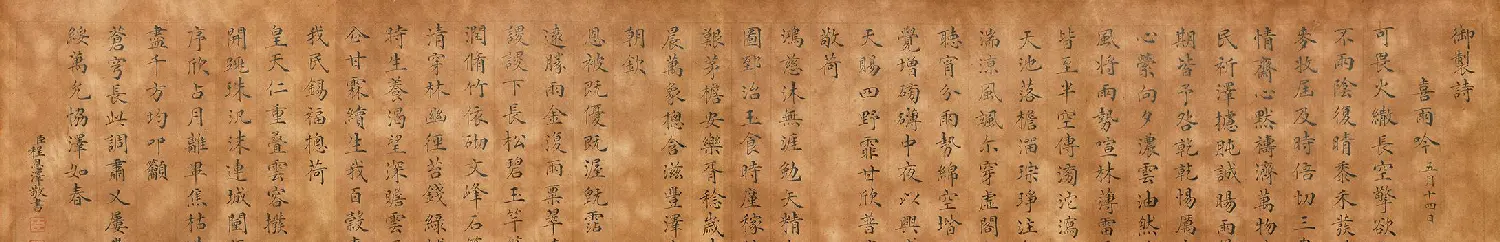 御製詩
喜雨吟 五月十四日
可是火繖長空擎欲
不雨陰復晴黍禾發
麥收屆及時倍切三
情齋心默禱濟萬物
民祈澤攄眊誠暘雨
期皆予咎乾乾惕厲
心縈向夕濃雲油然
風將雨勢喧林薄雷
皆至半空傳濁沱瀉
天池落檐溜琮琤注
湍涼風颯尔穿虛閣
聽宵分雨勢綿空增
覺增磅礡中夜以興
天賜四野霏甘欣普
敬荷
鴻慈沐無涯勉矢精
圖郅治玉食時廑稼
艱茅檐安樂胥稔歲
晨萬象摠含滋豐澤
朝歡
恩被既優既渥既霑
遠勝雨金復雨粟翠
謖謖下長松碧玉竿
澗脩竹依砌文峰石
清穿林幽徑苔錢綠
時生養渴望深瞻雲
仝甘霖續生我百穀
我民錫福摠荷
皇天仁重疊雲容撥
開跳珠汜沫連城闉
序欣占月離畢焦枯
盡千方均叩籲
蒼穹長此調肅乂屢
綏萬兆協澤如春
臣程恩澤敬書